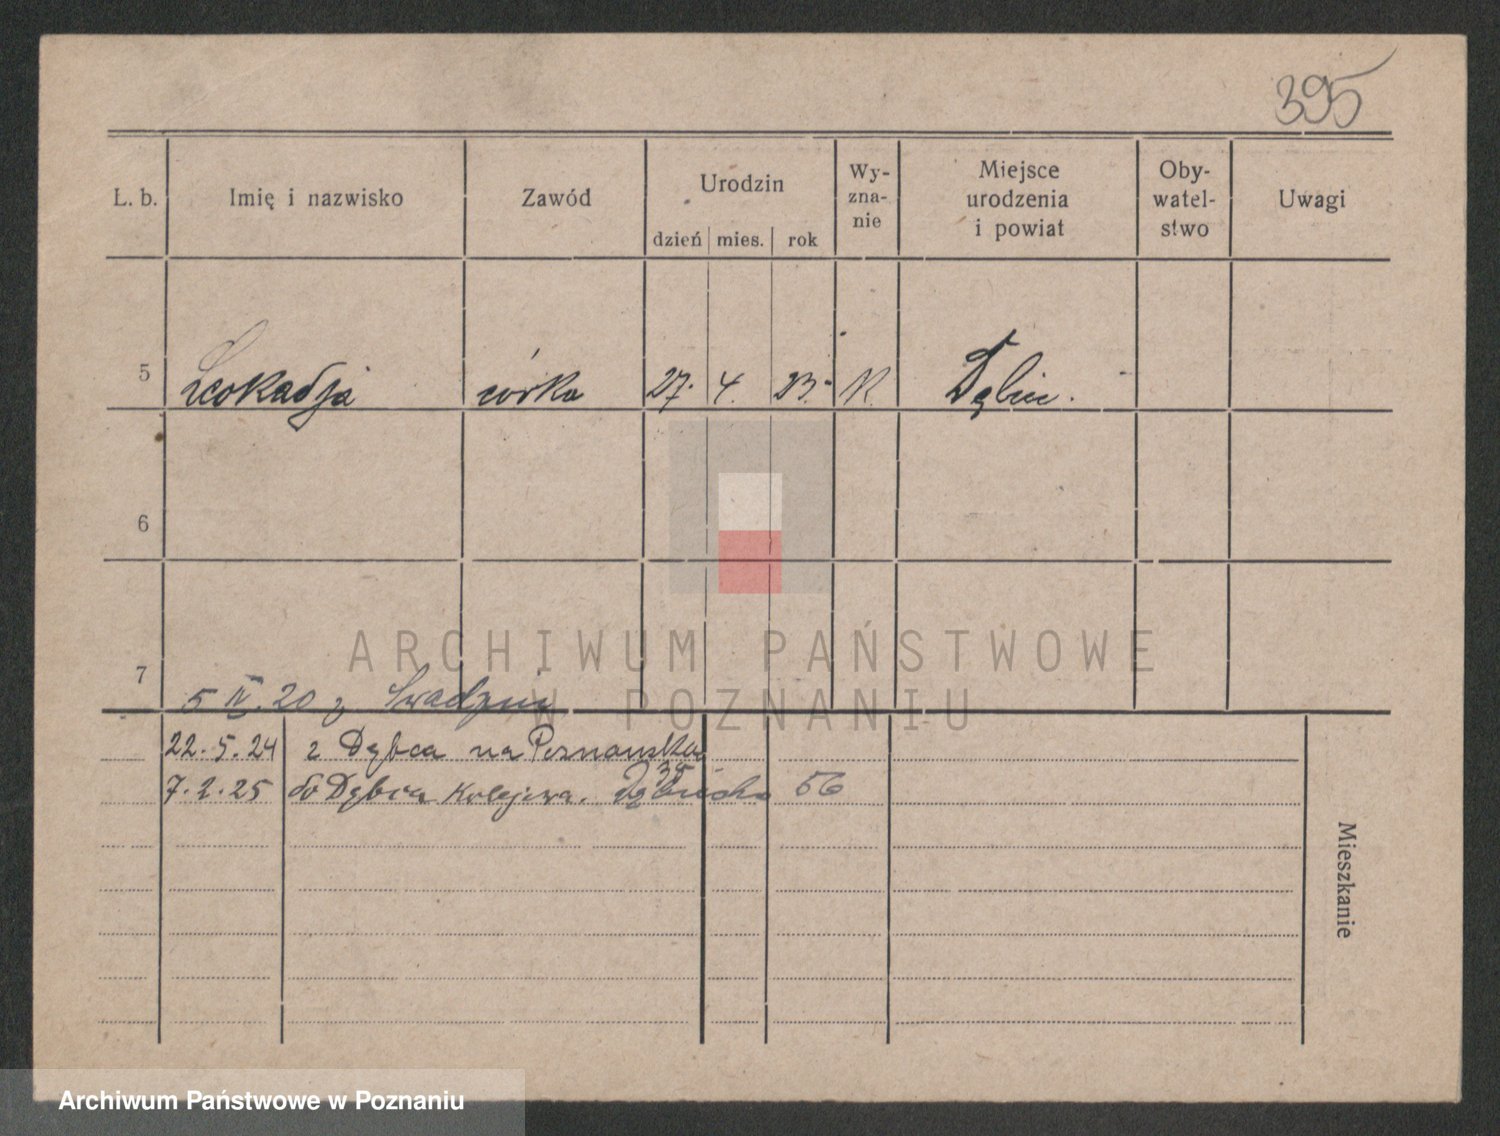 395
L. b. Imię i nazwisko Zawód Urodzin Wy-zna-nie Miejsce urodzenia i powiat Oby-watel-stwo Uwagi
dzień mies. rok
5 Leokadja córka 27. 4. 23. K. Dębiec.
6
7
5 IV. 20 z Swadzim
22. 5. 24 z Dębca na Poznańska
35
7. 2. 25 do Dębca Kolejowa. 56
Mieszkanie
ARCHIWUM PAŃSTWOWE
W POZNANIU
Archiwum Państwowe w Poznaniu